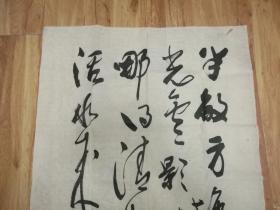 半亩方塘
光云影共
那得清如
活水来